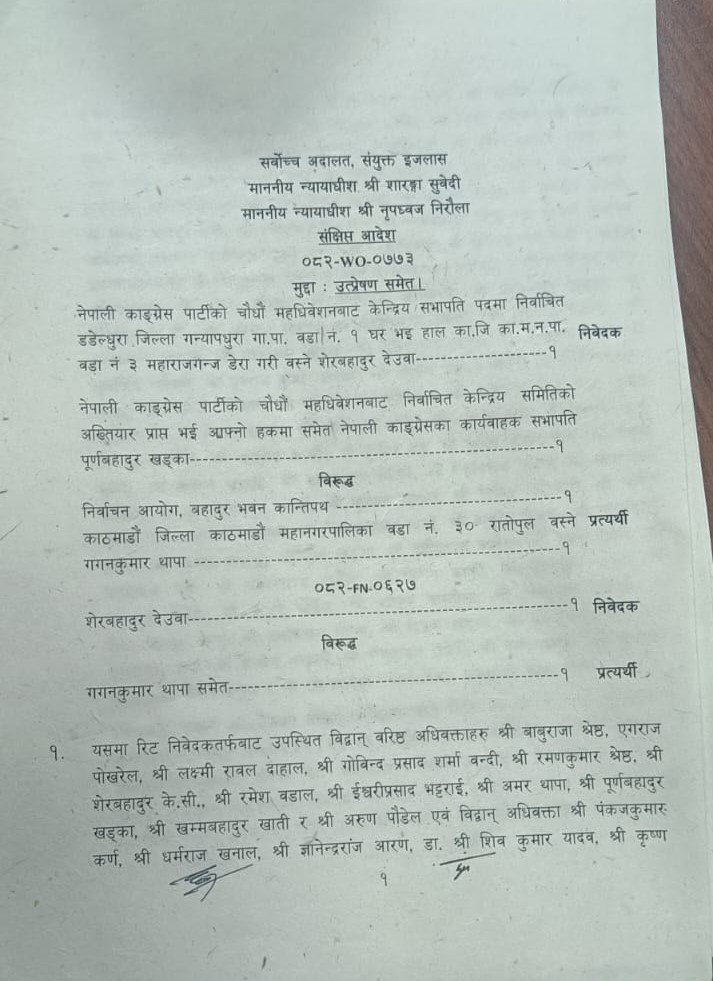 सर्वोच्च अदालत, संयुक्त इजलास
माननीय न्यायाधीश श्री शारङ्गा सुवेदी
माननीय न्यायाधीश श्री नृपध्वज निरौला
संक्षिप्त आदेश
०८२-WO-०७७३
मुद्दा : उत्प्रेषण समेत।
नेपाली काङ्ग्रेस पार्टीको चौधौं महधिवेशनबाट केन्द्रिय सभापति पदमा निर्वाचित
डडेल्धुरा जिल्ला गन्यापधुरा गा.पा. वडा नं. १ घर भइ हाल का.जि का.म.न.पा. निवेदक
वडा नं ३ महाराजगन्ज डेरा गरी वस्ने शेरबहादुर देउवा---------------------१
नेपाली काङ्ग्रेस पार्टीको चौधौं महधिवेशनबाट निर्वाचित केन्द्रिय समितिको
अख्तियार प्राप्त भई आफ्नो हकमा समेत नेपाली काङ्ग्रेसका कार्यवाहक सभापति
पूर्णबहादुर खड्का------------------------------------------------------------१
विरूद्ध
निर्वाचन आयोग, बहादुर भवन कान्तिपथ ------------------------------------१
काठमाडौं जिल्ला काठमाडौं महानगरपालिका वडा नं. ३० रातोपुल वस्ने प्रत्यर्थी
गगनकुमार थापा ------------------------------------------------------------१
०८२-FN-०६२७
शेरबहादुर देउवा------------------------------------------------------------१ निवेदक
विरूद्ध
गगनकुमार थापा समेत-----------------------------------------------------१ प्रत्यर्थी
१. यसमा रिट निवेदकतर्फबाट उपस्थित विद्वान् वरिष्ठ अधिवक्ताहरु श्री बाबुराजा श्रेष्ठ, एगराज
पोखरेल, श्री लक्ष्मी रावल दाहाल, श्री गोविन्द प्रसाद शर्मा वन्दी, श्री रमणकुमार श्रेष्ठ, श्री
शेरबहादुर के.सी., श्री रमेश वडाल, श्री ईश्वरीप्रसाद भट्टराई, श्री अमर थापा, श्री पूर्णबहादुर
खड्का, श्री खम्मबहादुर खाती र श्री अरुण पौडेल एवं विद्वान् अधिवक्ता श्री पंकजकुमार
कर्ण, श्री धर्मराज खनाल, श्री ज्ञानेन्द्रराज आरण, डा. श्री शिव कुमार यादव, श्री कृष्ण
१